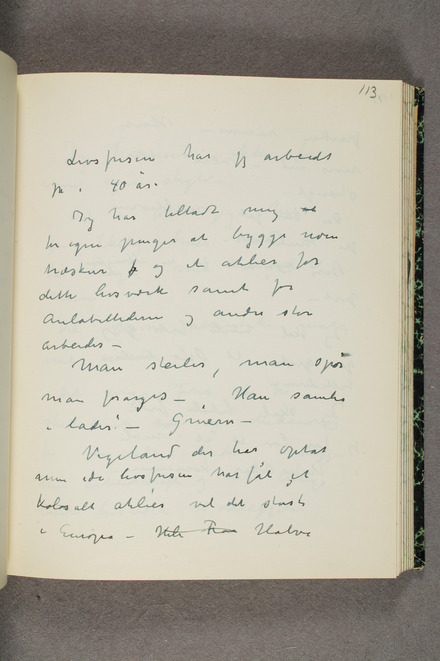 113.
Livsfrisen har jeg arbeidt
på i 40 år.
Jeg har tilladt mig at
for egne penger at bygge noen
træskur og et atelier for
dette livsværk samt for
Aulabillederne og andre store
arbeider –
Man steiler, man spør
man forarges – Han samler
i lader! – Gnieren –
Vigeland der har optat
min ide livsfrisen har fåt et
kolosalt atelier vel det største
i Europa – Halve